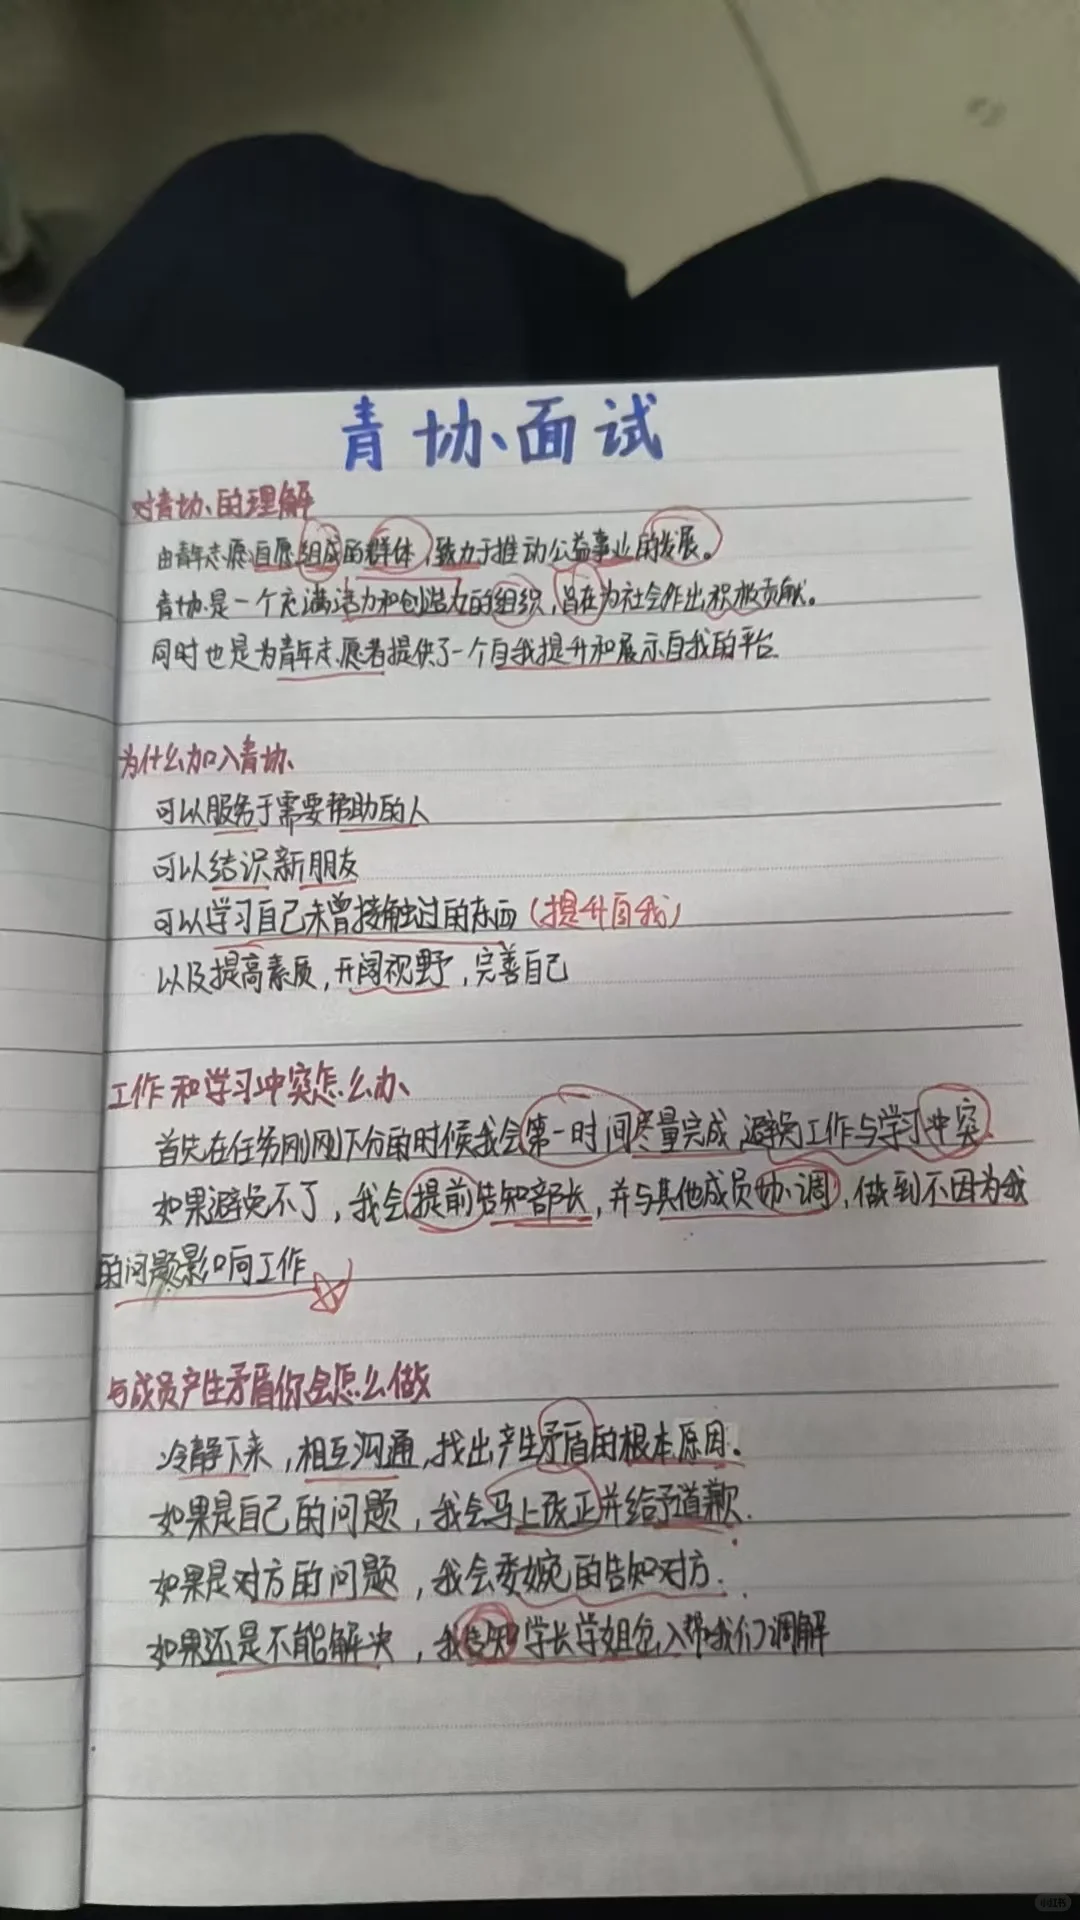 青协面试
对青协的理解
由青年志愿自愿组成的群体，致力于推动公益事业的发展。
青协是一个充满活力和创造力的组织，旨在为社会作出积极贡献。
同时也是为青年志愿者提供了一个自我提升和展示自我的平台
为什么加入青协
可以服务于需要帮助的人
可以结识新朋友
可以学习自己未曾接触过的东西（提升自我）
以及提高素质，开阔视野，完善自己
工作和学习冲突怎么办
首先在任务刚刚下分的时候我会第一时间尽量完成，避免工作与学习冲突.
如果避免不了，我会提前告知部长，并与其他成员协调，做到不因为我
的问题影响工作
与成员产生矛盾你会怎么做
冷静下来，相互沟通，找出产生矛盾的根本原因。
如果是自己的问题，我会马上改正并给予道歉.
如果是对方的问题，我会委婉的告知对方.
如果还是不能解决，我告知学长学姐介入帮我们调解
小红书